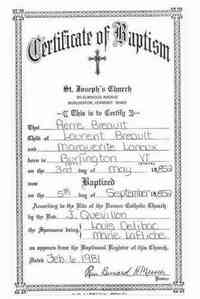 Certificate of Baptism
St. Joseph's Church
BURLINGTON, VERMONT
This is to Certify
That Pierre Breault
Child of Laurent Breault
and Marguerite
born in Burlington VT.
on the 3rd day of May 1859
was
Baptized
on the 5th day of September 1859
According to the Rite of the Roman Catholic Church
by the Rev. J. Quevillon
the Sponsors being Louis
Marie LaFleche
as appears from the Baptismal Register of this Church.
Dated Feb. 6, 1981
Rev. Bernard